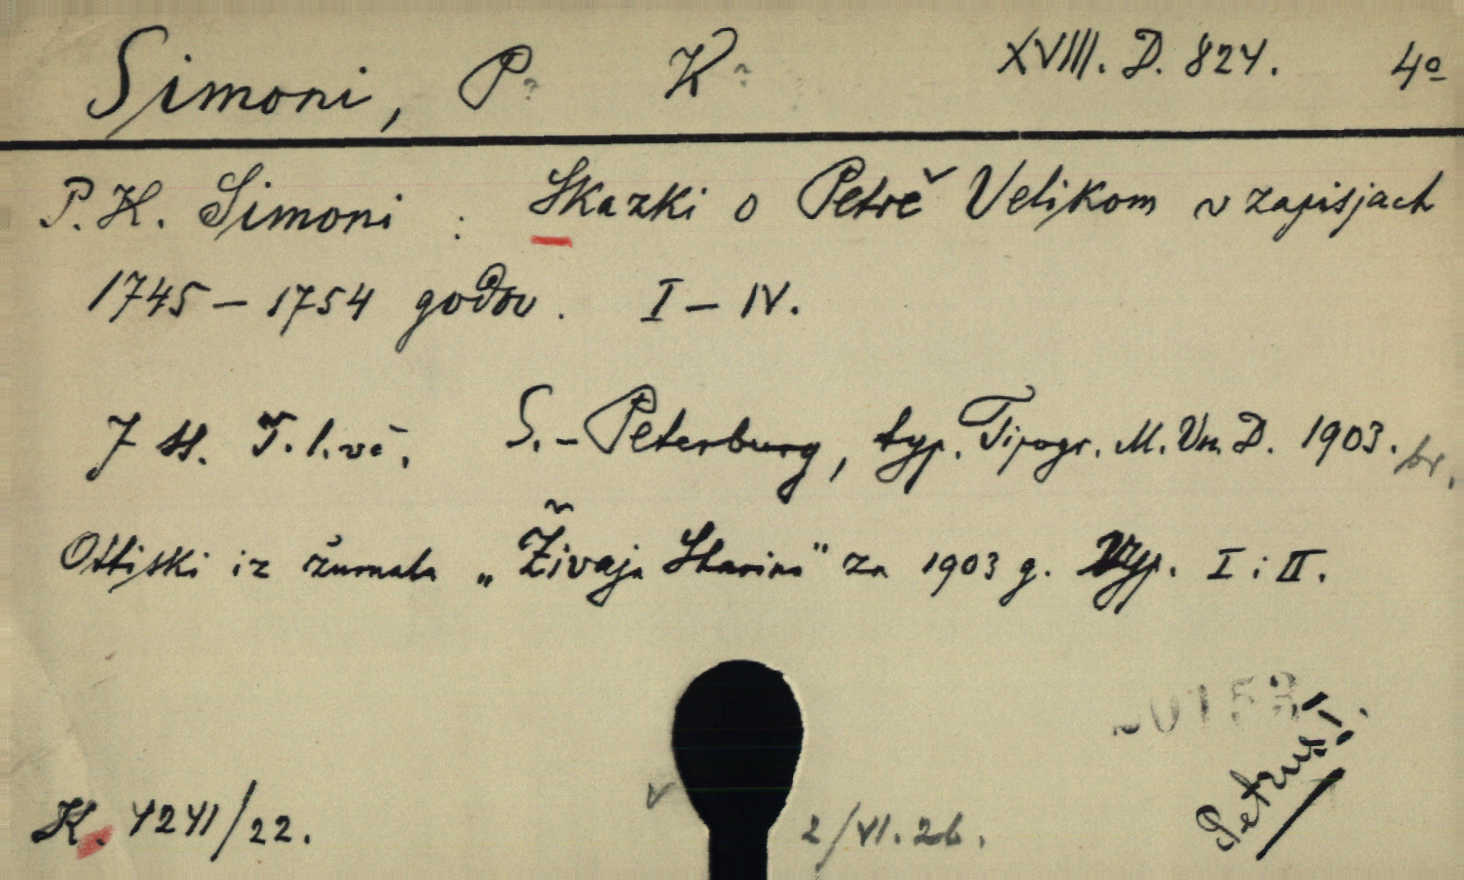 Simoni, P? K? XVIII. D. 824. 4º
P. K. Simoni : Skazki o Petrě Velikom v zapisjach
1745 – 1754 godov. I – IV.
S.-Peterburg, typ. Tipogr. M. Vn. D. 1903. br.
Ottiski iz žurnala „Živaja Starina" za 1903 g. Vyp. I i II.
0153
Petrus I.
K. 4241/22.
2/VI. 26.